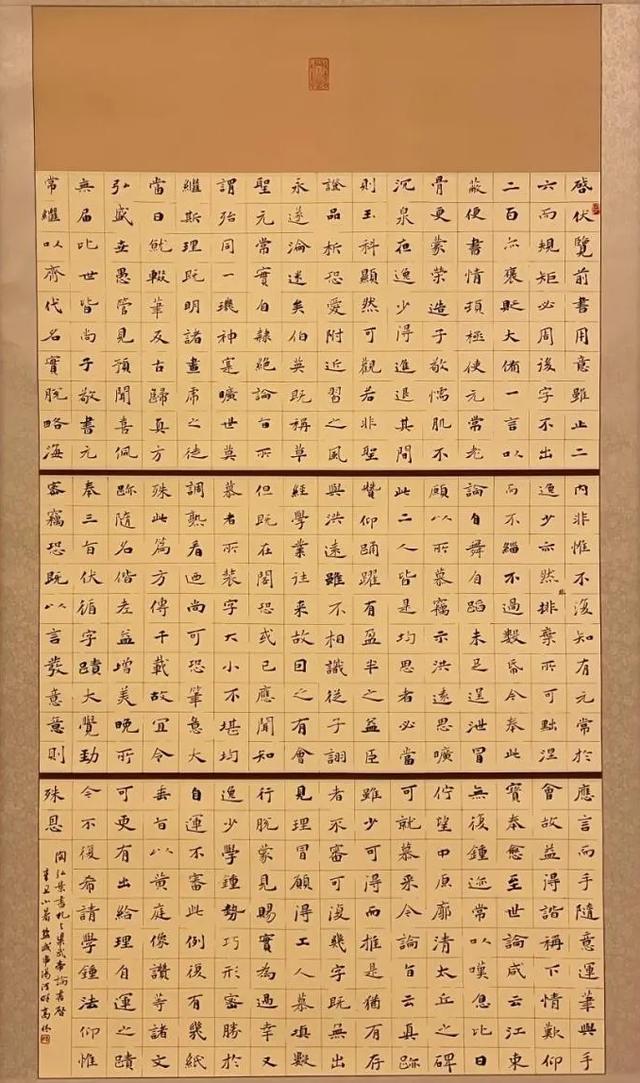 啓伏覽前書用意雖止二
六而規矩必周後字不出
二百亦褒貶大備一言以
蔽便書情頂極使元常老
骨更蒙榮造子敬懦肌不
沉泉在逸少得進退其間
則玉科顯然可觀若非聖
證品析恐愛附近習之風
永遂淪迷矣伯英既稱草
聖元常實自隸絕論旨所
謂殆同一璣神寔曠世莫
繼斯理既明諸畫虎之徒
當日就輟筆反古歸真方
弘盛世愚管見預聞喜佩
無屆比世皆尚子敬書元
常繼以齊代名實脫略海
内非惟不復知有元常於
逸少亦然排棄所可黜涅
而不緇不過數帋今奉此
論自舞自蹈未足逞泄冒
願以所慕竊示洪遠思曠
此二人皆是均思者必當
贊仰踊躍有盈半之益臣
與洪遠雖不相識從子詡
經學業往來故因之有會
但既在閤恐或已應聞知
慕者所裝字大小不堪均
調熟看廼尚可恐筆意大
殊此篇方傳千載故宜令
跡隨名偕老益增美晚所
奉三旨伏循字蹟大覺勁
審竊恐既以言發意意則
應言而手隨意運筆與手
會故益得諧稱下情歡仰
寶奉愈至世論咸云江東
無復鍾迹常以嘆息比日
佇望中原廓清太丘之碑
可就慕采今論旨云真跡
雖少可得而推是猶有存
者不審可復幾字既無出
見理冒願得工人摹填數
行脫蒙見賜實為過幸又
逸少學鍾勢巧形審勝於
自運不審此例復有幾紙
垂旨以黃庭像讚等諸文
可更有出給理自運之蹟
今不復希請學鍾法仰惟
殊恩
陶弘景書札之梁武帝論書啓
辛丑小暑